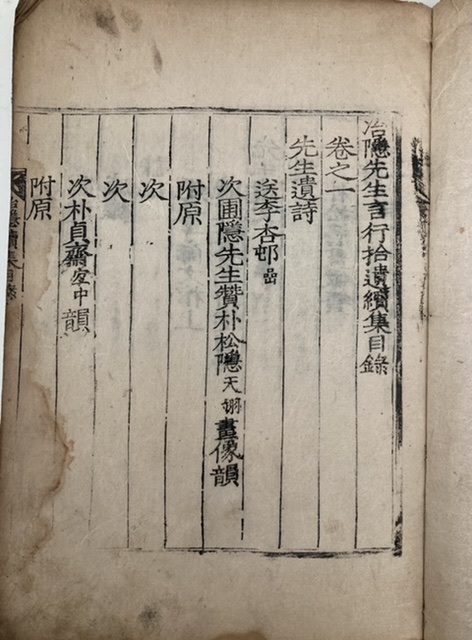 冶隱先生言行拾遺續集目錄
卷之一
先生遺詩
送李杏邨嵒
次圃隱先生贊朴松隱天翊畫像韻
附原
次
次
次朴貞齋宜中韻
附原
隱續集目錄